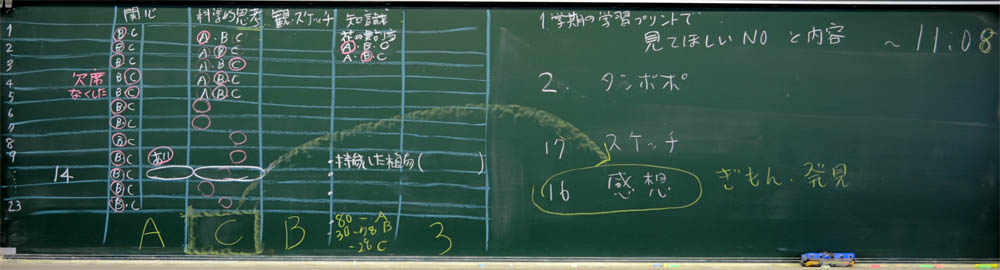 関心 科学的思考 観・スケッチ 知識
1 B C A・B・C 花の数え方
2 B・C A B C A・B・C
3 B C A・B C A・B・C
4 欠席 B C A B・C
5 なくした B C A B・C
6 B・C
7 B・C
8 B・C
9 B C あり ・持参した植物( )
14 B・C
B・C
23 B・C
A C B ・80-A 3
30-78 B
-28 C
1学期の学習プリントで
見てほしいNOと内容 ~11:08
2. タンポポ
17 スケッチ
16 感想 ぎもん・発見